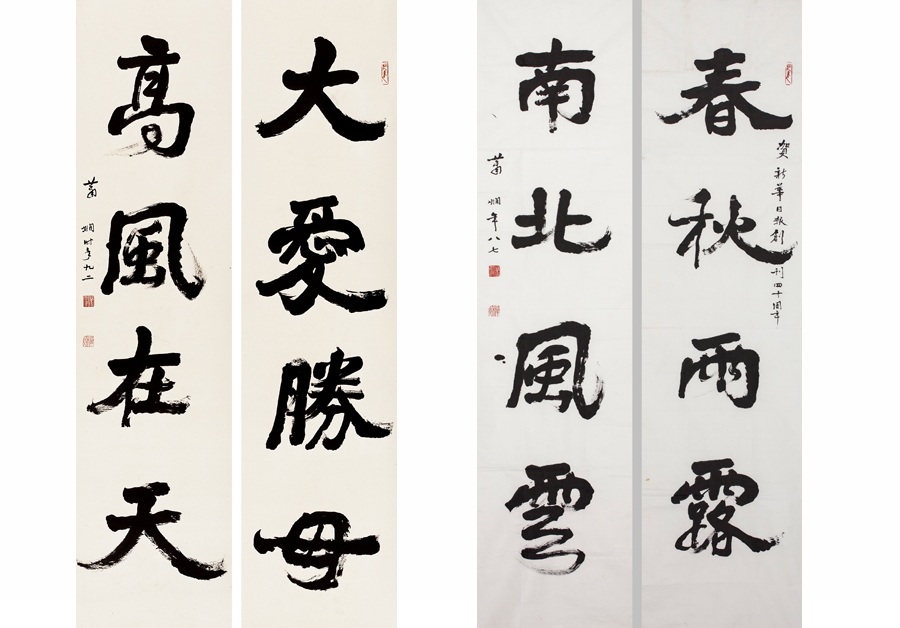 大愛勝母
高風在天
蕭嫻時年九二
春秋雨露
賀新華日报創刊四十周年
南北風雲
蕭嫻年八七